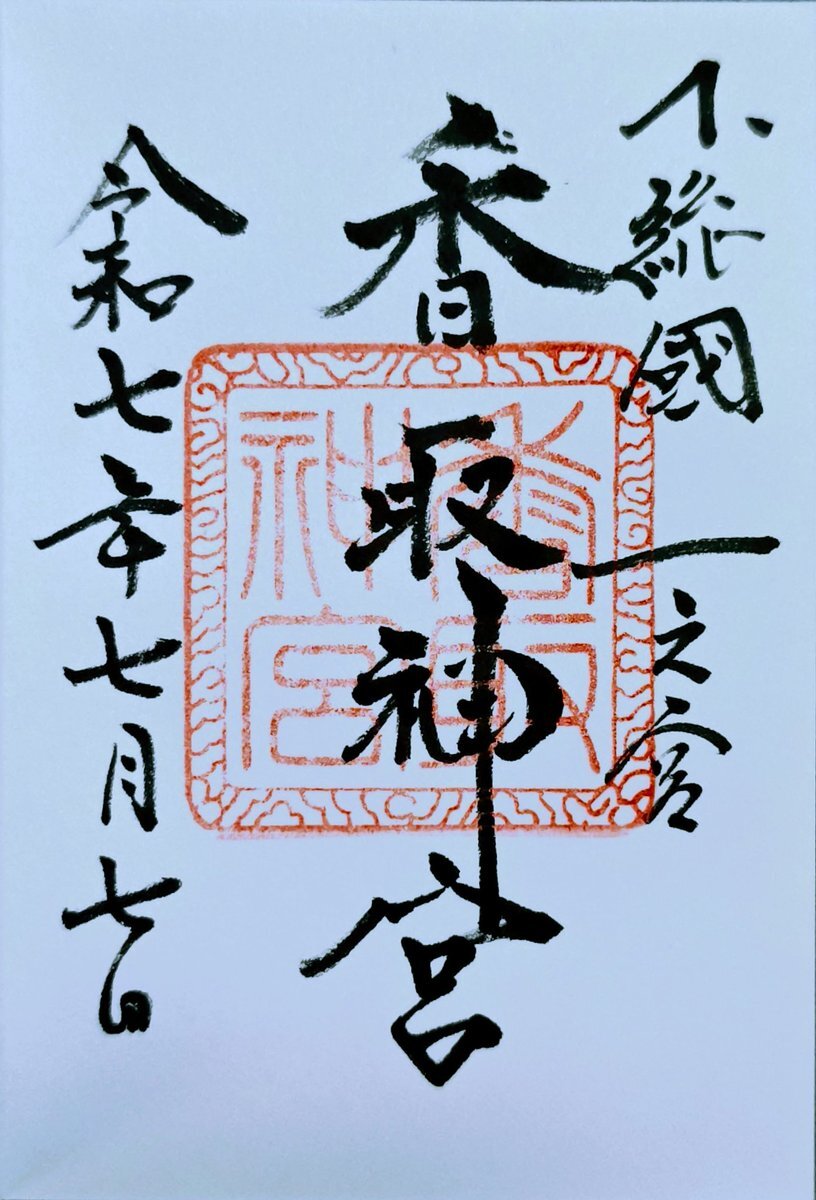 下総國一之宮
香取神宮
香取神宮
令和七年七月七日